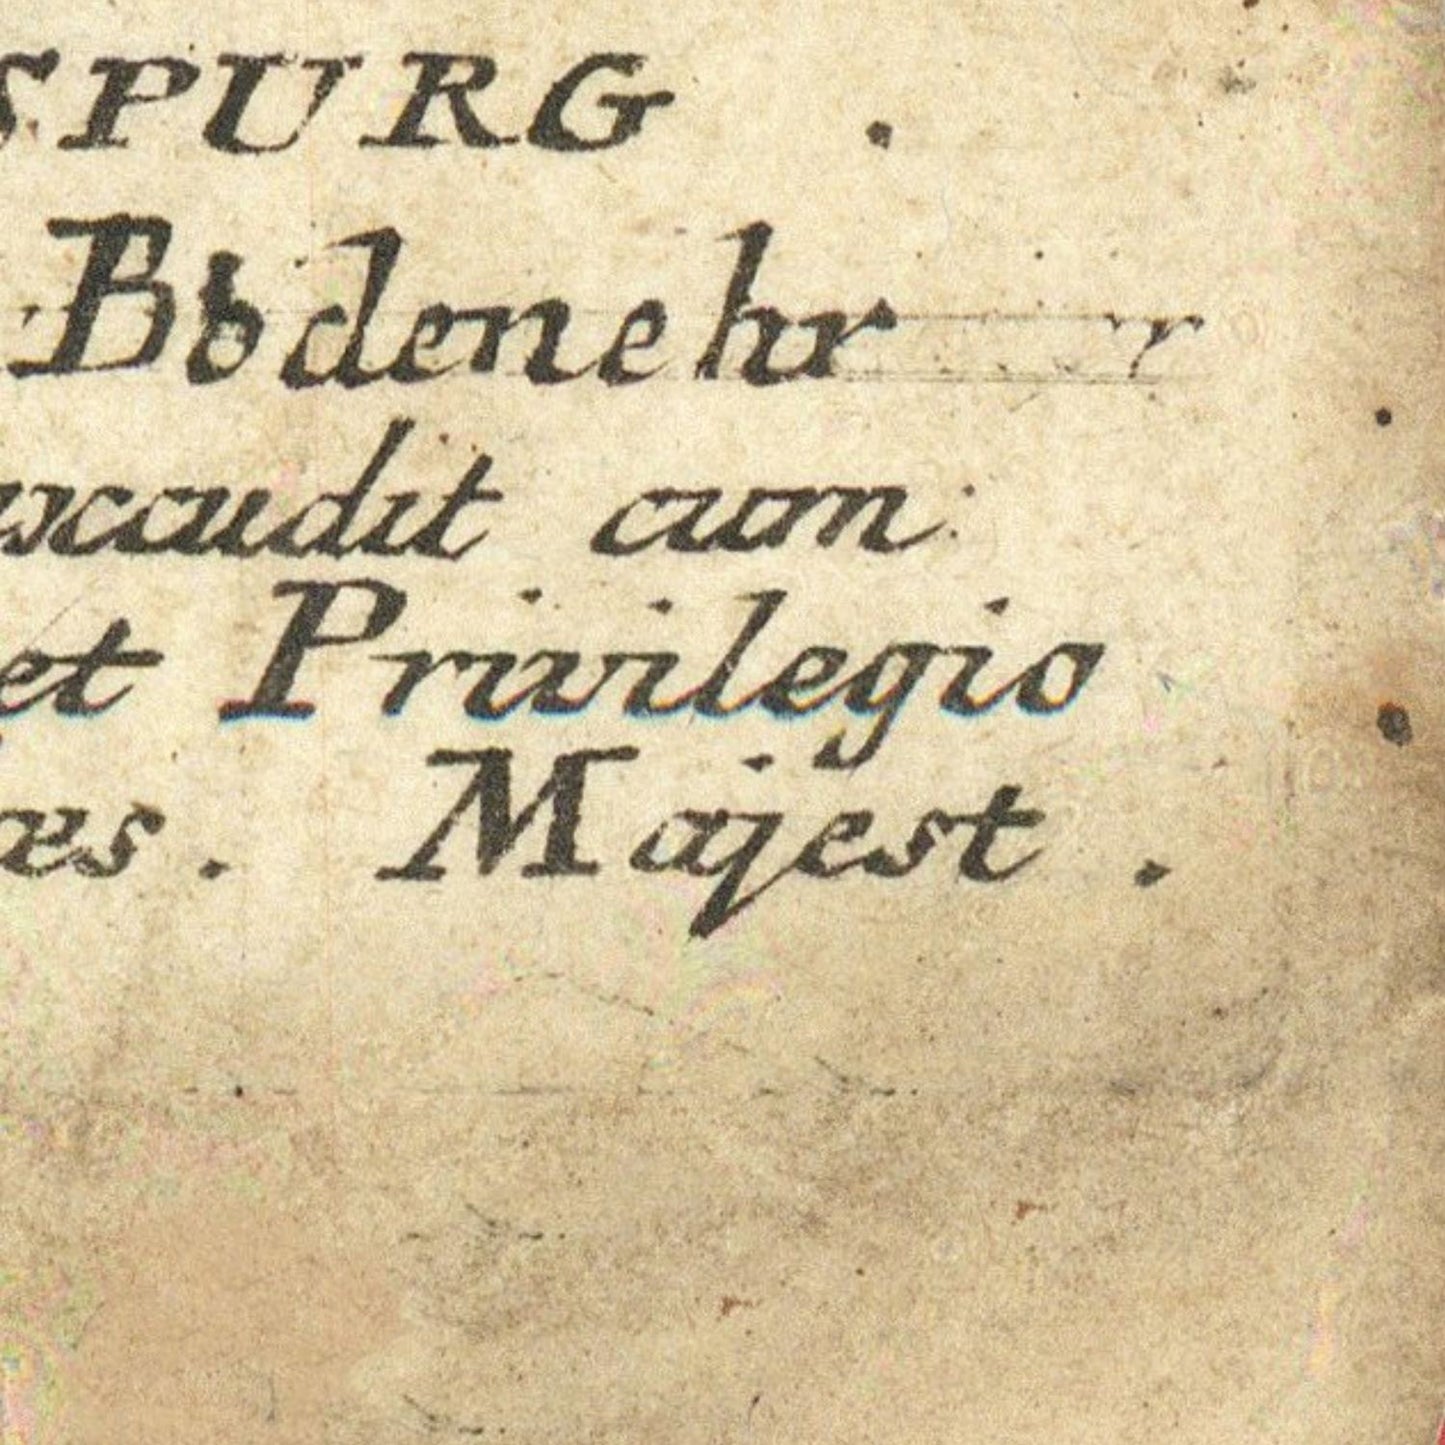 SPURG .
Bodenehr
excudit cum
et Privilegio
æs. Majest.